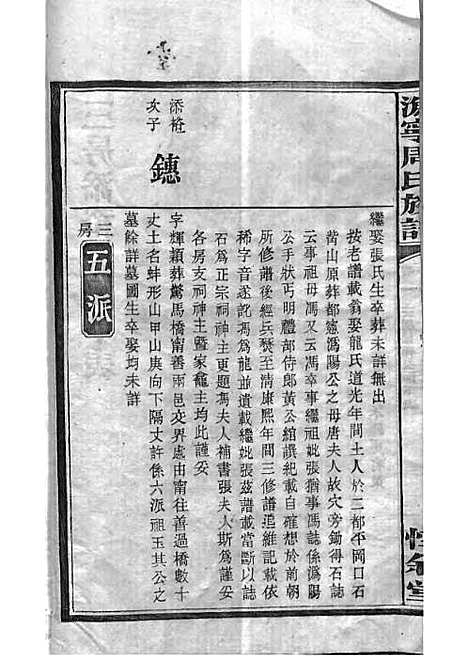 寧周氏族譜
繼娶張氏生卒葬未詳無出
按老譜載翁娶龍氏道光年間土人於二都平岡口石
山原葬都憲溈陽公之母唐夫人故穴旁鋤得石誌
云事祖母馮又云馮卒事繼祖妣張猶事馮誌係溈陽
公手狀丐明禮部侍郎黃公綰撰紀載自確想於前朝
所修譜後經兵燹至清康熙年間三修譜追維記載依
稀字音遂訛馮為龍並遺載繼妣張茲譜載當斷以誌
石為正宗祠神主更題馮夫人補書張夫人斯為謹妥
各房支祠神主暨家龕主均此謹妥
添
次子
鏸
字輝穎葬鸞馬橋甯善兩邑交界處由甯往善過橋數十
丈土名蚌形山甲山庚向下隔丈許係六派祖玉其公之
墓餘詳墓圖生卒娶均未詳
三房
五派
惇敘堂